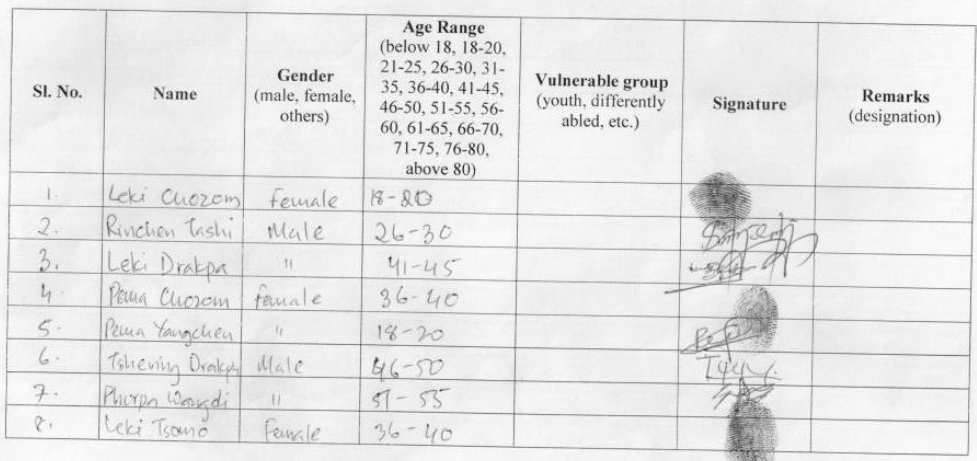 Sl. No. Name Gender (male, female, others) Age Range (below 18, 18-20, 21-25, 26-30, 31-35, 36-40, 41-45, 46-50, 51-55, 56-60, 61-65, 66-70, 71-75, 76-80, above 80) Vulnerable group (youth, differently abled, etc.) Signature Remarks (designation)
1. Leki Chozom female 18-20
2. Rinchen Tashi Male 26-30
3. Leki Drakpa " 41-45
4. Pema Chozom female 36-40
5. Pema Yangchen " 18-20
6. Tshering Drakpa Male 46-50
7. Phurpa Wangdi " 51-55
8. Leki Tsomo Female 36-40